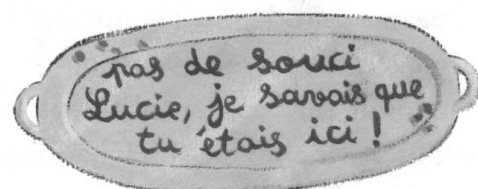 pas de souci
Lucie, je savais que
tu étais ici !